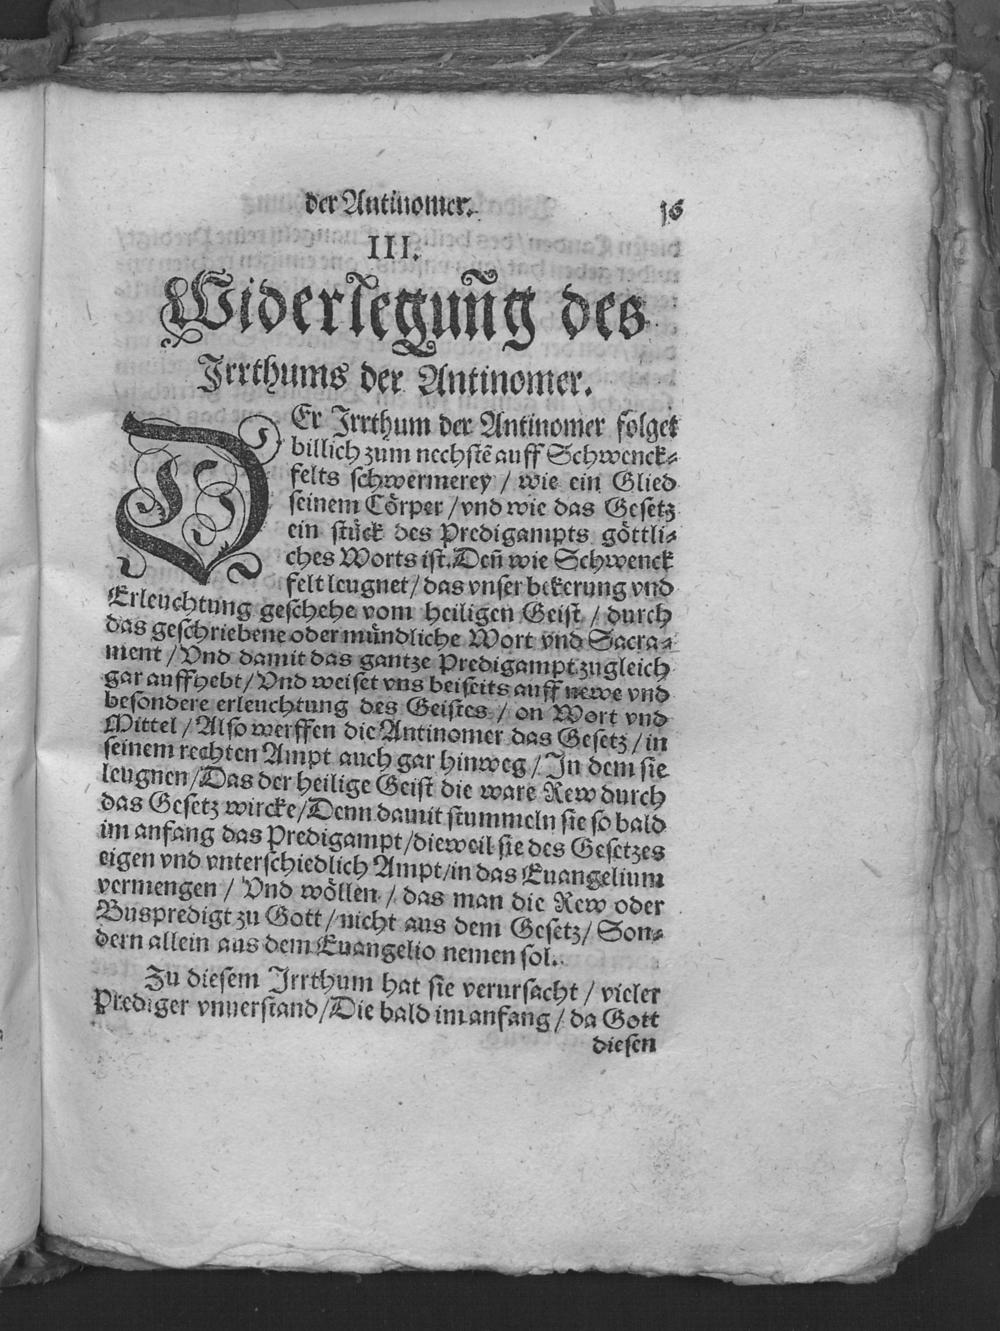 der Antinomer. 36
III.
Widerlegung des
Irrthums der Antinomer.
DEr Irrthum der Antinomer folget
billich zum nechstẽ auff Schwenck⸗
felts schwermerey / wie ein Glied
seinem Cörper / vnd wie das Gesetz
ein stück des Predigampts göttli⸗
ches Worts ist. Deñ wie Schwenck
felt leugnet / das vnser bekerung vnd
Erleuchtung geschehe vom heiligen Geist / durch
das geschriebene oder mündliche Wort vnd Sacra⸗
ment / Vnd damit das gantze Predigampt zugleich
gar auffhebt / Vnd weiset vns beiseits auff newe vnd
besondere erleuchtung des Geistes / on Wort vnd
Mittel / Also werffen die Antinomer das Gesetz / in
seinem rechten Ampt auch gar hinweg / In dem sie
leugnen / Das der heilige Geist die ware Rew durch
das Gesetz wircke / Denn damit stummeln sie so bald
im anfang das Predigampt / dieweil sie des Gesetzes
eigen vnd vnterschiedlich Ampt / in das Euangelium
vermengen / Vnd wöllen / das man die Rew oder
Buspredigt zu Gott / nicht aus dem Gesetz / Son⸗
dern allein aus dem Euangelio nemen sol.
Zu diesem Irrthum hat sie verursacht / vieler
Prediger vnuerstand / Die bald im anfang / da Gott
diesen